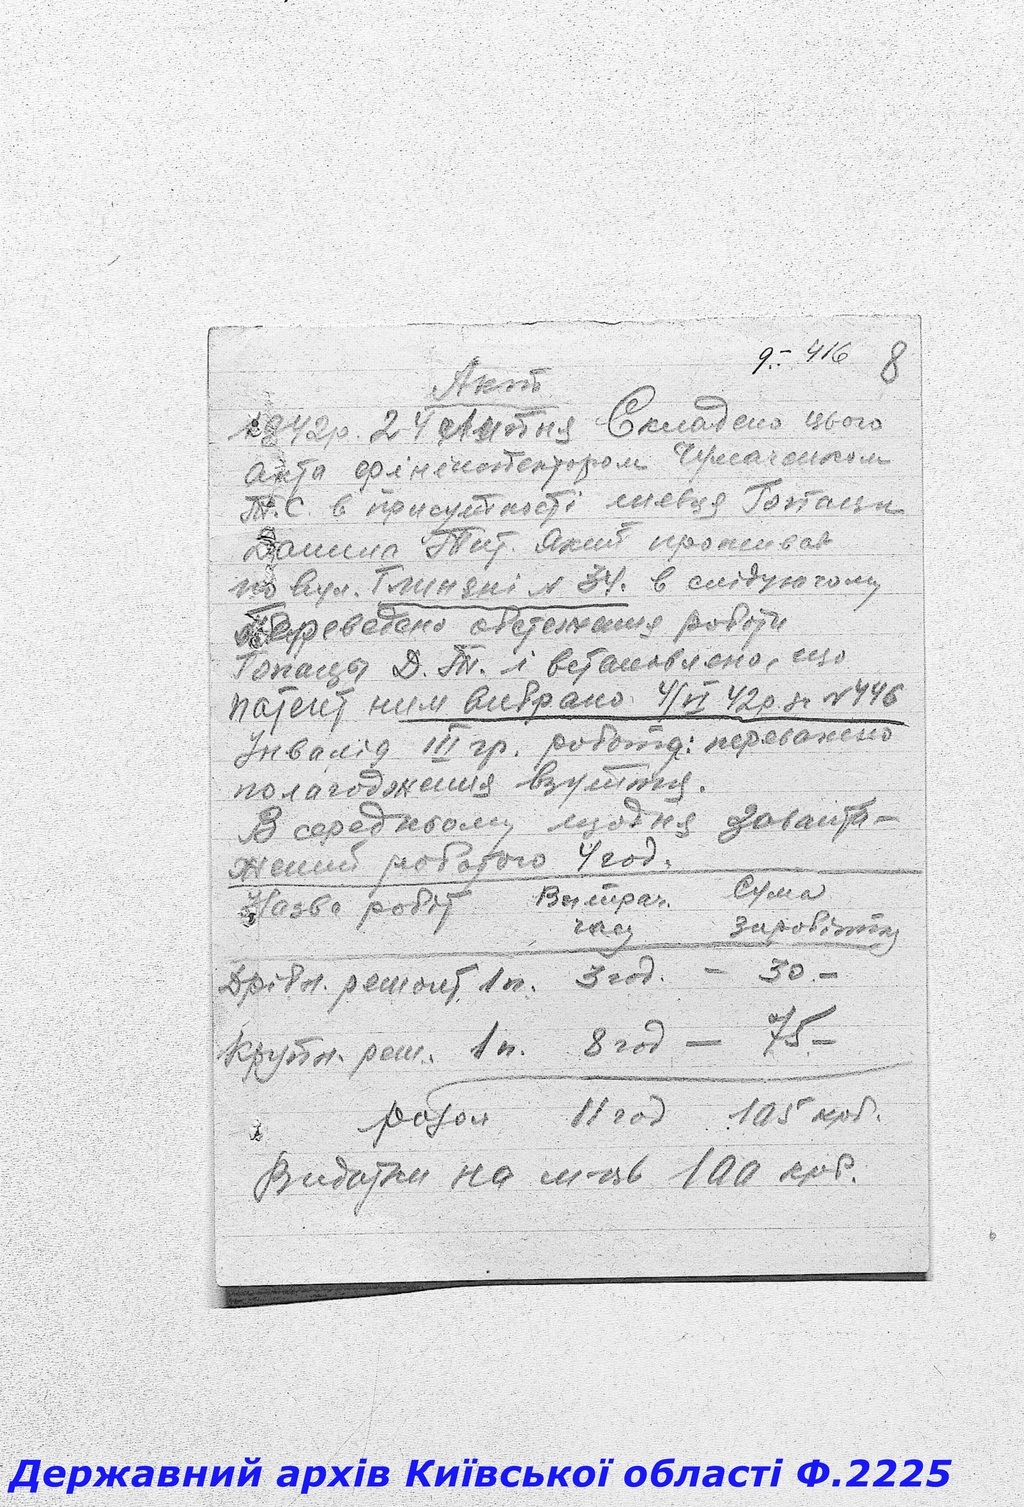 9.- 416 8
Акт
1942р. 24 липня Складено цього
акта фінінспектором Чумаченком
Т.С. в присутності шевця Гопаци
Данила Тит. Який проживає
по вул. Глиняні № 34. в слідуючому
Переведено обстеження роботи
Гопацы Д. Т. і встановлено, що
патент ним вибрано 4/VI 42р. за №446
Інвалід III гр. робота: переважено
полагодження взуття.
В середньому щодня заванта-
жений роботою 4 год.
Назва робіт Витрач. Сума
часу заробітку
Дрібн. ремонт 1 п. 3 год. - 30.-
Крупн. рем. 1 п. 8 год - 75.-
разом 11 год 105 крб.
Видатки на м-ць 100 крб.
Державний архів Київської області Ф.2225